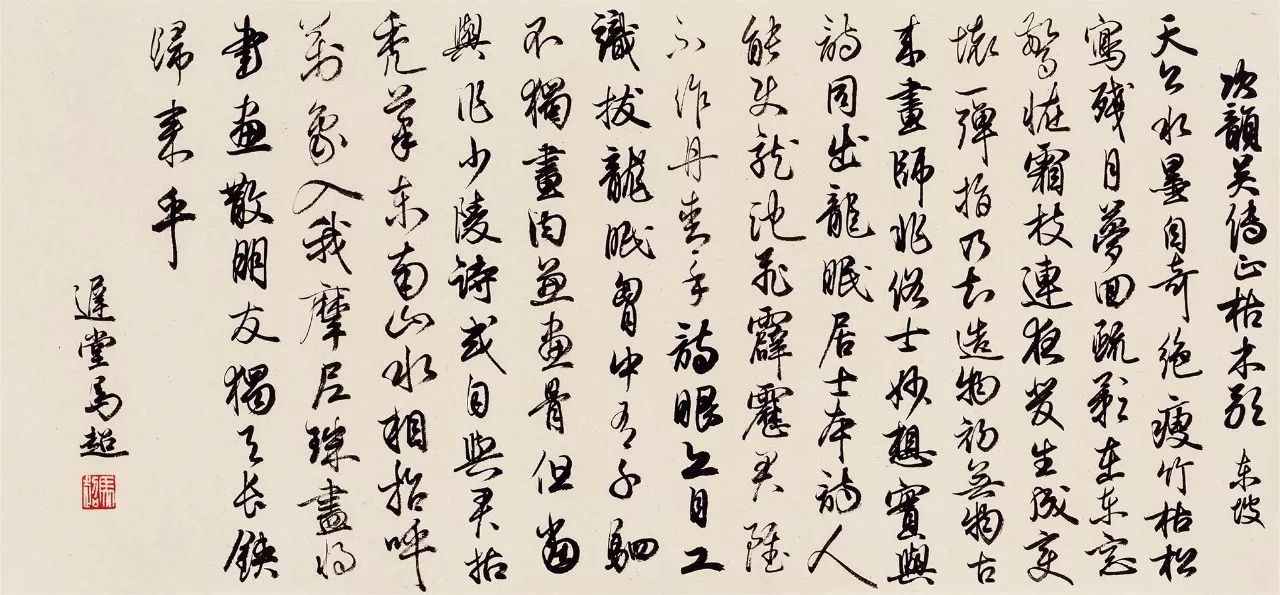 次韻吴傳正枯木歌 东坡
天公水墨自奇絶瘦竹枯松
寫殘月夢回疏影在东窓
驚怪霜枝連夜發生成变
壞一彈指乃知造物初无物古
来畫師非俗士妙想實與
詩同出龍眠居士本詩人
能使龍池飛霹靂君雖
不作丹青手詩眼亦自工
識拔龍眠胸中有千駟
不獨畫肉兼畫骨但當
與作少陵詩或自與君拈
秃筆东南山水相招呼
萬象入我摩尼珠盡将
書畫散朋友獨与长鋏
歸来乎
遲堂馬超
馬超